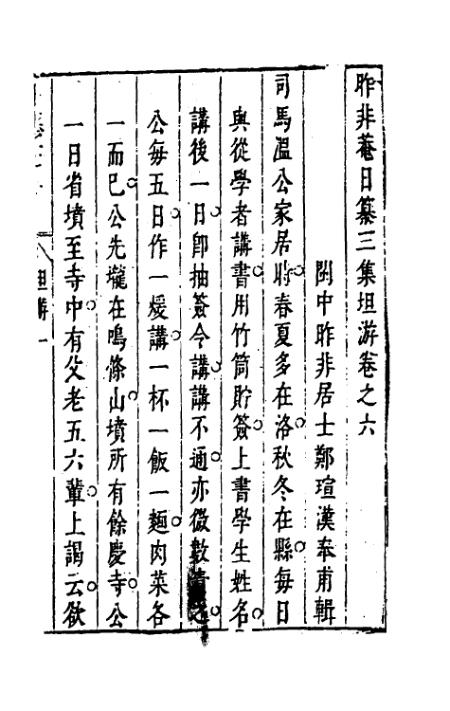 昨非菴日纂三集坦游卷之六
閩中昨非居士鄭瑄漢奉甫輯
司馬温公家居時春夏多在洛秋冬在縣每日
與從學者講書用竹筒貯簽上書學生姓名
講後一日卽抽簽令講講不通亦微數責之
公每五日作一煖講一杯一飯一麵肉菜各
一而已公先壠在鳴條山墳所有餘慶寺公
一日省墳至寺中有父老五六輩上謁云欲